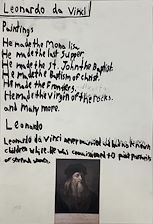 Leonardo da Vinci
Paintings
He made the Mona lisa.
He made the last supper.
He made the St. John the Baptist.
He made the Baptism of christ.
He made the
He made the Virgin of the rocks.
and Many more.
Leonardo
Leonardo da vinci never married
children while He was commissioned to paint portraits
of women.